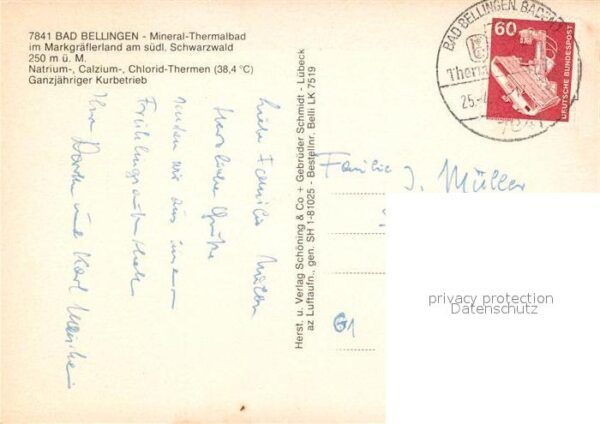 7841 BAD BELLINGEN - Mineral-Thermalbad
im Markgräflerland am südl. Schwarzwald
250 m ü. M.
Natrium-, Calzium-, Chlorid-Thermen (38,4 °C)
Ganzjähriger Kurbetrieb
Liebe Familie Müller
Herzliche Grüße
senden wir aus
Frühlings
Ihre und Karl
Herst. u. Verlag Schöning & Co + Gebrüder Schmidt - Lübeck
az Luftaufn., gen. SH 1-81025 - Bestellnr. Belli LK 7519
BAD BELLINGEN, BADEN
Therm
25.-
7841
60
DEUTSCHE BUNDESPOST
Familie J. Müller
privacy protection
Datenschutz